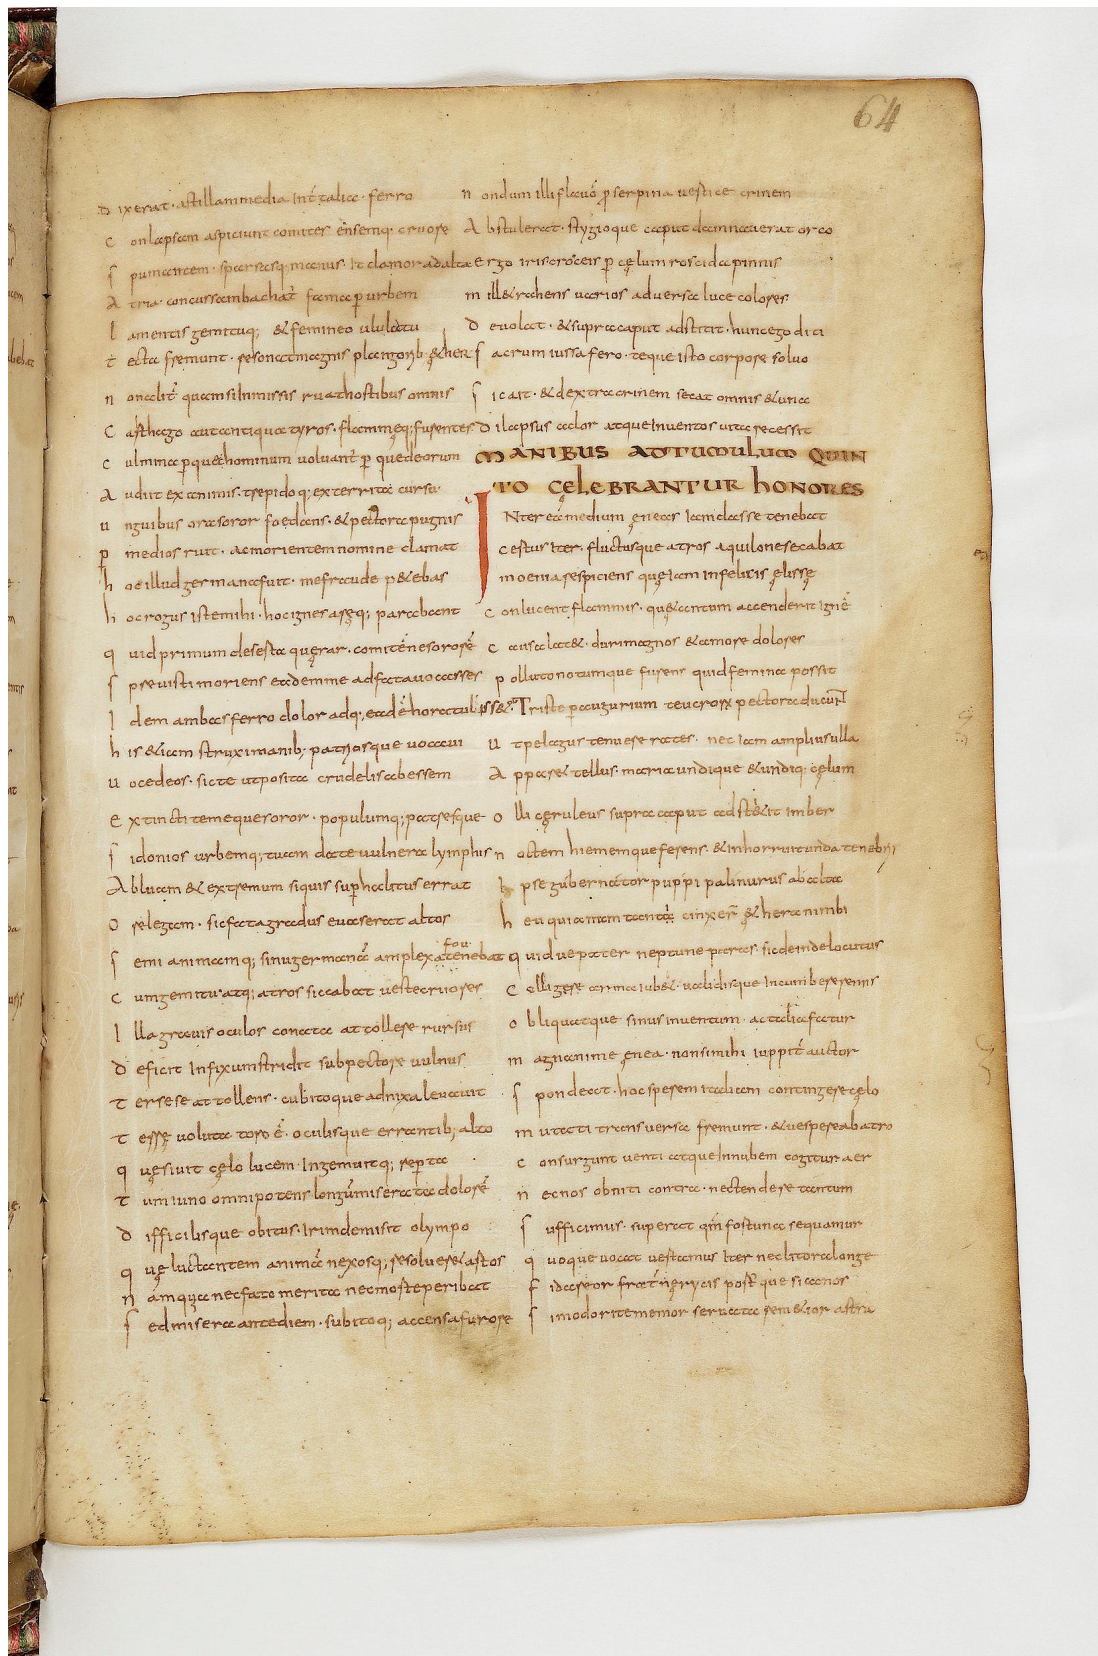 64
Dixerat · astillammedia int̄ talia · ferro
conlapsam aspiciunt comites ensemq; cruore
spumantem · sparsasq; manus · It clamor adalta
Atria · concussambachat̄ fama p̄ urbem
lamentis gemituq; & femineo ululatu
tecta fremunt · resonat magnis plangorib; &her
non alit̄ quamsi inmissis ruat hostibus omnis
Carthago aut antiqua tyros · flammęq; furentes
culmina p̄ que hominum voluant̄ p̄ que deorum
Audiit exanimis · trepidoq; exterrita cursu
unguibus ora soror foedans · & pectora pugnis
p̄ medios ruit · ac morientem nomine clamat
hoc illud germana fuit · me fraude p&ebas
hoc rogus iste mihi · hoc ignes aręq; parabant
quid primum deserta quęrar · comitēne sororē
spreuisti moriens eadem me ad fata uocasses
Idem ambas ferro dolor adq; eadē hora tuliss&
his &iam struxi manib; patriosque uocaui
uoce deos · sic te ut posita crudelis abessem
extincti te meque soror · populumq; patresque
sidonios urbemq; tuam date uulnera lymphis
Abluam & extremum siquis sup̄ halitus errat
Ore legam · sic fata gradus euaserat altos
semi animamq; sinu germanā amplexa tenebat
fou
cum gemitu · atq; atros siccabat ueste cruores
Illa grauis oculos conata attollere rursus
Deficit Infixum stridit sub pectore uulnus
Ter sese attollens · cubitoque adnixa leuauit
Ter reuoluta toro ē · oculisque errantib; alto
quęsiuit cęlo lucem · Ingemuitq; rep̄ta
Tum iuno omnipotens longū miserata dolorē
Difficilisque obitus · Irim demisit olympo
quę luctantem animā nexosq; resoluer& artos
namquia nec fato merita nec morte peribat
sed misera ante diem · subitoq; accensa furore
nondum illi flauō p̄serpina uertice crinem
Abstulerat · stygioque caput damnauerat orco
ergo iris croceis p̄ cęlum roscida pinnis
mille trahens uarios aduersa luce colores
deuolat · & supra caput adstitit · hunc ego diti
sacrum iussa fero · teque isto corpore soluo
sic ait · & dextra crinem secat omnis & una
dilapsus calor atque Inuentos uita recessit
MANIBUS AD TUMULUM QUIN
TO CĘLEBRANTUR HONORES
INterea medium ęneas Iam classe tenebat
certus Iter · fluctusque atros aquilone secabat
moenia respiciens quę Iam Infelicis elissę
conlucent flammis · quę tantum accenderit Ignē
causa lat& · duri magnos & amore dolores
polluto notumque furens quid femina possit
Triste p̄ augurium teucrorx pectora ducun̄
Ut pelagus tenuere rates · nec Iam amplius ulla
Appar& tellus · maria undique & undiq; cęlum
olli cęruleus supra caput adstitit imber
noctem hiememque ferens · & inhorruit unda tenebris
Ipse gubernator puppi palinurus ab alta
heu quianam tanti cinxer̄ &hera nimbi
quidue pater neptune paras · sic deinde locutus
Colligere arma iub& · ualidisque Incumbere remis
obliquatque sinus in uentum · ac talia fatur
magnanime ęnea · non si mihi iuppit̄ auctor
spondeat · hoc sperem italiam contingere cęlo
mutati transuersa fremunt · & uespere ab atro
consurgunt uenti atque In nubem cogitur aer
nec nos obniti contra · nec tendere tantum
sufficimus · superat qm̄ fortuna sequamur
quoque uocat uertamus Iter nec litora longe
fida reor frat̄na erycis port̄que sicanos
si modo rite memor seruata rem&ior astra